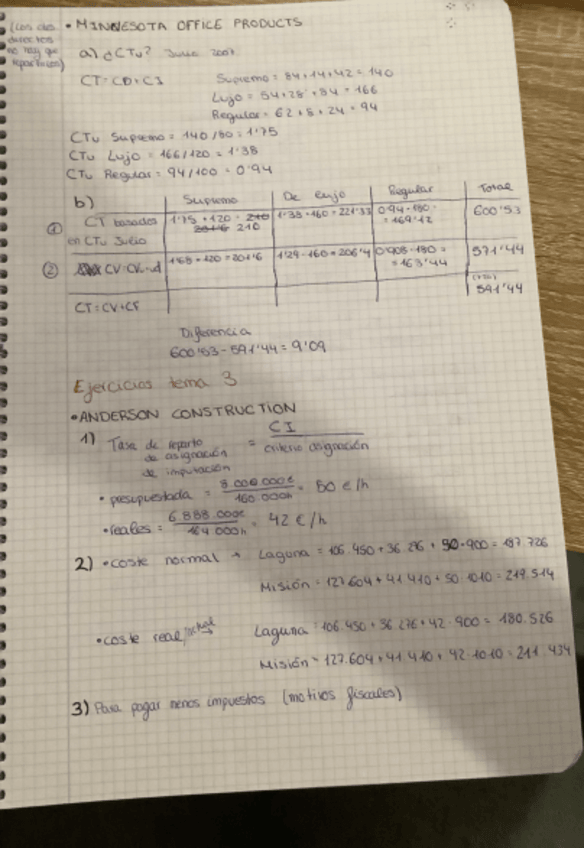 (Los cdos
directos
no hay que
repartirlos)
• MINNESOTA OFFICE PRODUCTS
a) ¿CTu? Julio 2007
CT = CD + CI
Supremo = 84+14+42 = 140
Lujo = 54+28+84 = 166
Regular = 62+8+24 = 94
CTu Supremo = 140/80 = 1'75
CTu Lujo = 166/120 = 1'38
CTu Regular = 94/100 = 0'94
b)
Supremo De Lujo Regular Total
① CT basados en CTu Julio
1'75 · 120 = 210
1'38 · 160 = 221'33
0'94 · 180 = 169'12
600'53
② CV = CVu · ud
1'68 · 120 = 201'6
1'29 · 160 = 206'4
0'908 · 180 = 163'44
571'44
CT = CV + CF
591'44
Diferencia
600'53 - 591'44 = 9'09
Ejercicios tema 3
• ANDERSON CONSTRUCTION
1) Tasa de reparto
de asignación
de imputación
= CI / criterio asignación
• presupuestada = 8.000.000€ / 160.000h = 50 €/h
• reales = 6.888.000€ / 164.000h = 42 €/h
2) • coste normal → Laguna = 106.450 + 36.276 + 50·900 = 187.726
Misión = 127.604 + 41.410 + 50·1010 = 219.514
• coste real → Laguna = 106.450 + 36.276 + 42·900 = 180.526
Misión = 127.604 + 41.410 + 42·1010 = 211.434
3) Para pagar menos impuestos (motivos fiscales)